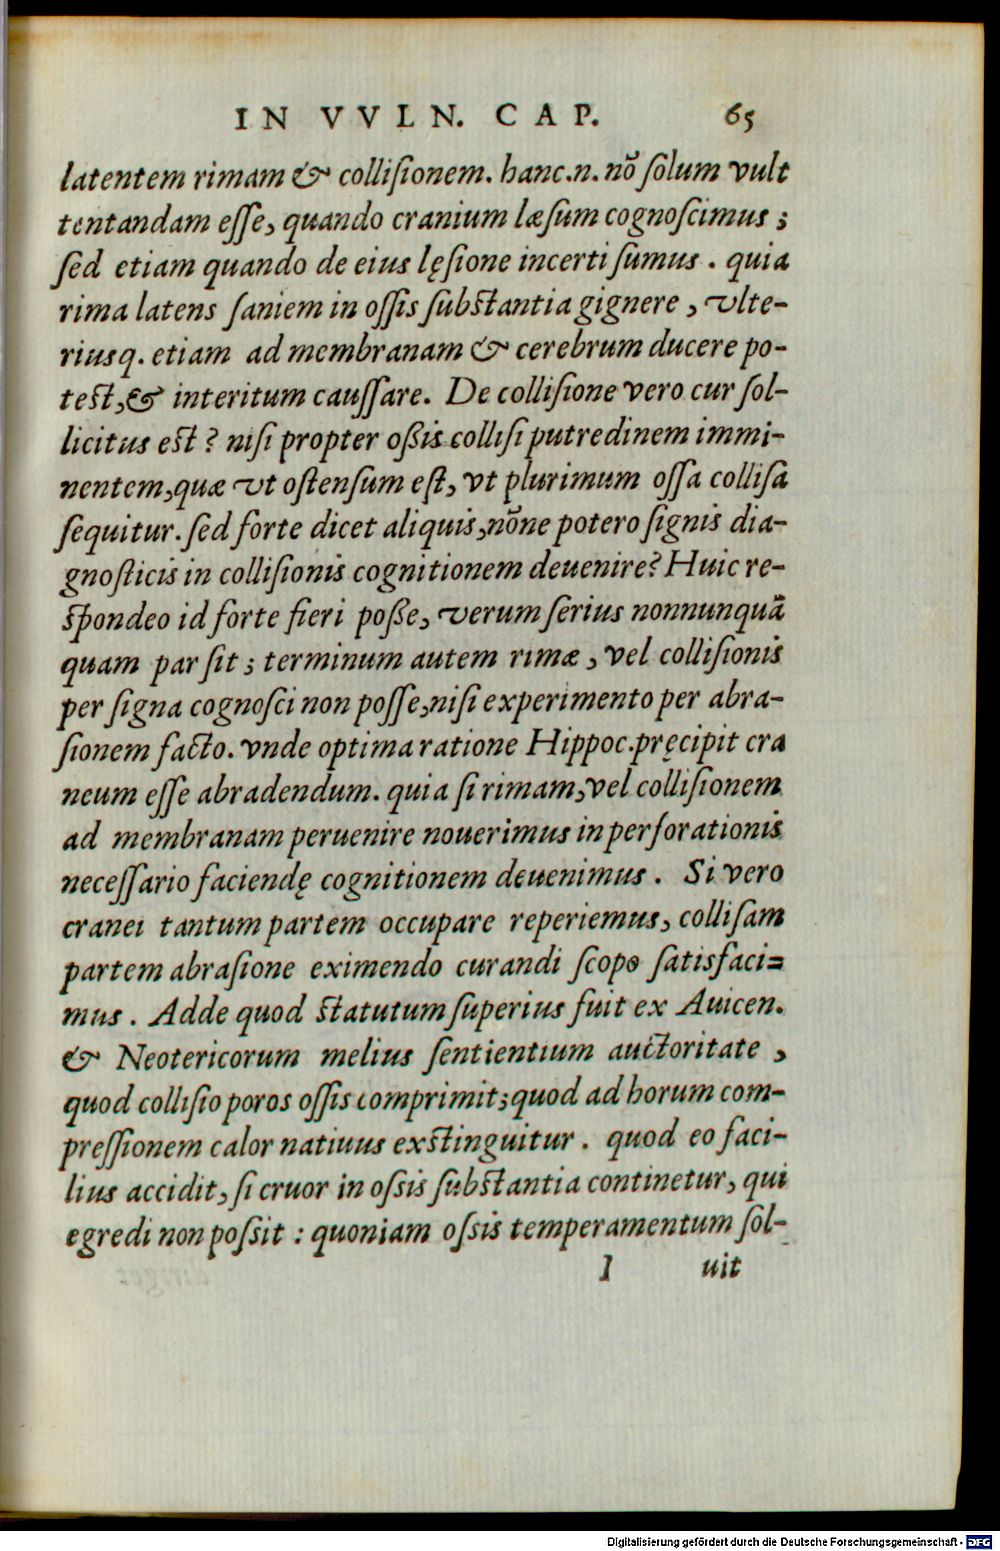 IN VVLN. CAP. 65
latentem rimam & collisionem. hanc.n. nō solum vult
tentandam esse, quando cranium læsum cognoscimus ;
sed etiam quando de eius lęsione incerti sumus . quia
rima latens saniem in ossis substantia gignere , vlte-
riusq. etiam ad membranam & cerebrum ducere po-
test,& interitum caussare. De collisione vero cur sol-
licitus est ? nisi propter oßis collisi putredinem immi-
nentem,quæ vt ostensum est, vt plurimum ossa collisa
sequitur. sed forte dicet aliquis,nōne potero signis dia-
gnosticis in collisionis cognitionem deuenire? Huic re-
spondeo id forte fieri poße, verum serius nonnunquā
quam par sit ; terminum autem rimæ , vel collisionis
per signa cognosci non posse,nisi experimento per abra-
sionem facto. vnde optima ratione Hippoc.pręcipit cra
neum esse abradendum. quia si rimam,vel collisionem
ad membranam peruenire nouerimus in perforationis
necessario faciendę cognitionem deuenimus . Si vero
cranei tantum partem occupare reperiemus, collisam
partem abrasione eximendo curandi scopo satisfaci=
mus . Adde quod statutum superius fuit ex Auicen.
& Neotericorum melius sentientium auctoritate ,
quod collisio poros ossis comprimit; quod ad horum com-
pressionem calor natiuus exstinguitur . quod eo faci-
lius accidit, si cruor in ossis substantia continetur, qui
egredi non possit : quoniam ossis temperamentum sol-
I uit
Digitalisierung gefördert durch die Deutsche Forschungsgemeinschaft - DFG